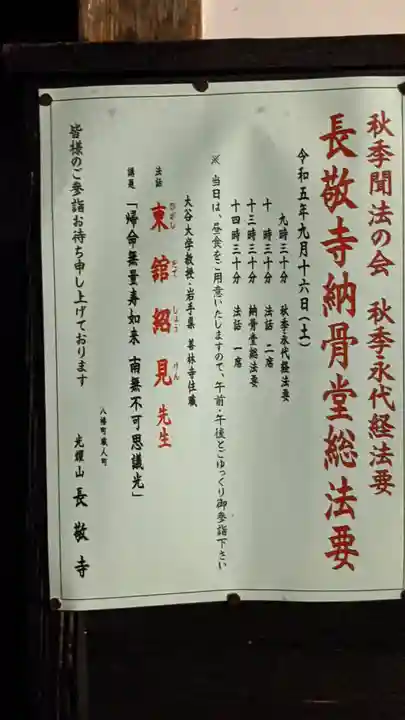 秋季聞法の会　秋季永代経法要
長敬寺納骨堂総法要
令和五年九月十六日（土）
九時三十分　秋季永代経法要
十時三十分　法話　二席
十三時三十分　納骨堂総法要
十四時三十分　法話　一席
※　当日は、昼食をご用意いたしますので、午前・午後とごゆっくり御参詣下さい
大谷大学教授・岩手県　善林寺住職
法話　東舘紹見先生
ひがし　だて　しょう　けん
講題　「帰命無量寿如来　南無不可思議光」
皆様のご参詣お待ち申し上げております
八幡町職人町
光耀山　長敬寺